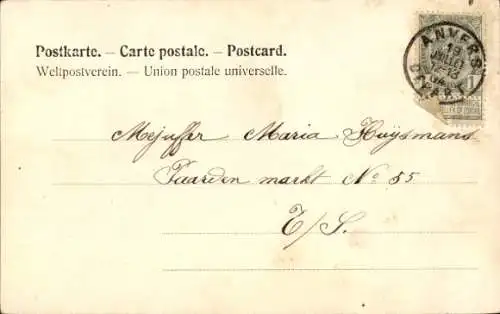 Postkarte. – Carte postale. – Postcard.
Weltpostverein. – Union postale universelle.
ANVERS
19
JUILLET
DEPART
1
Mejuffer Maria Huysmans
Paarden markt No 55
E/S.